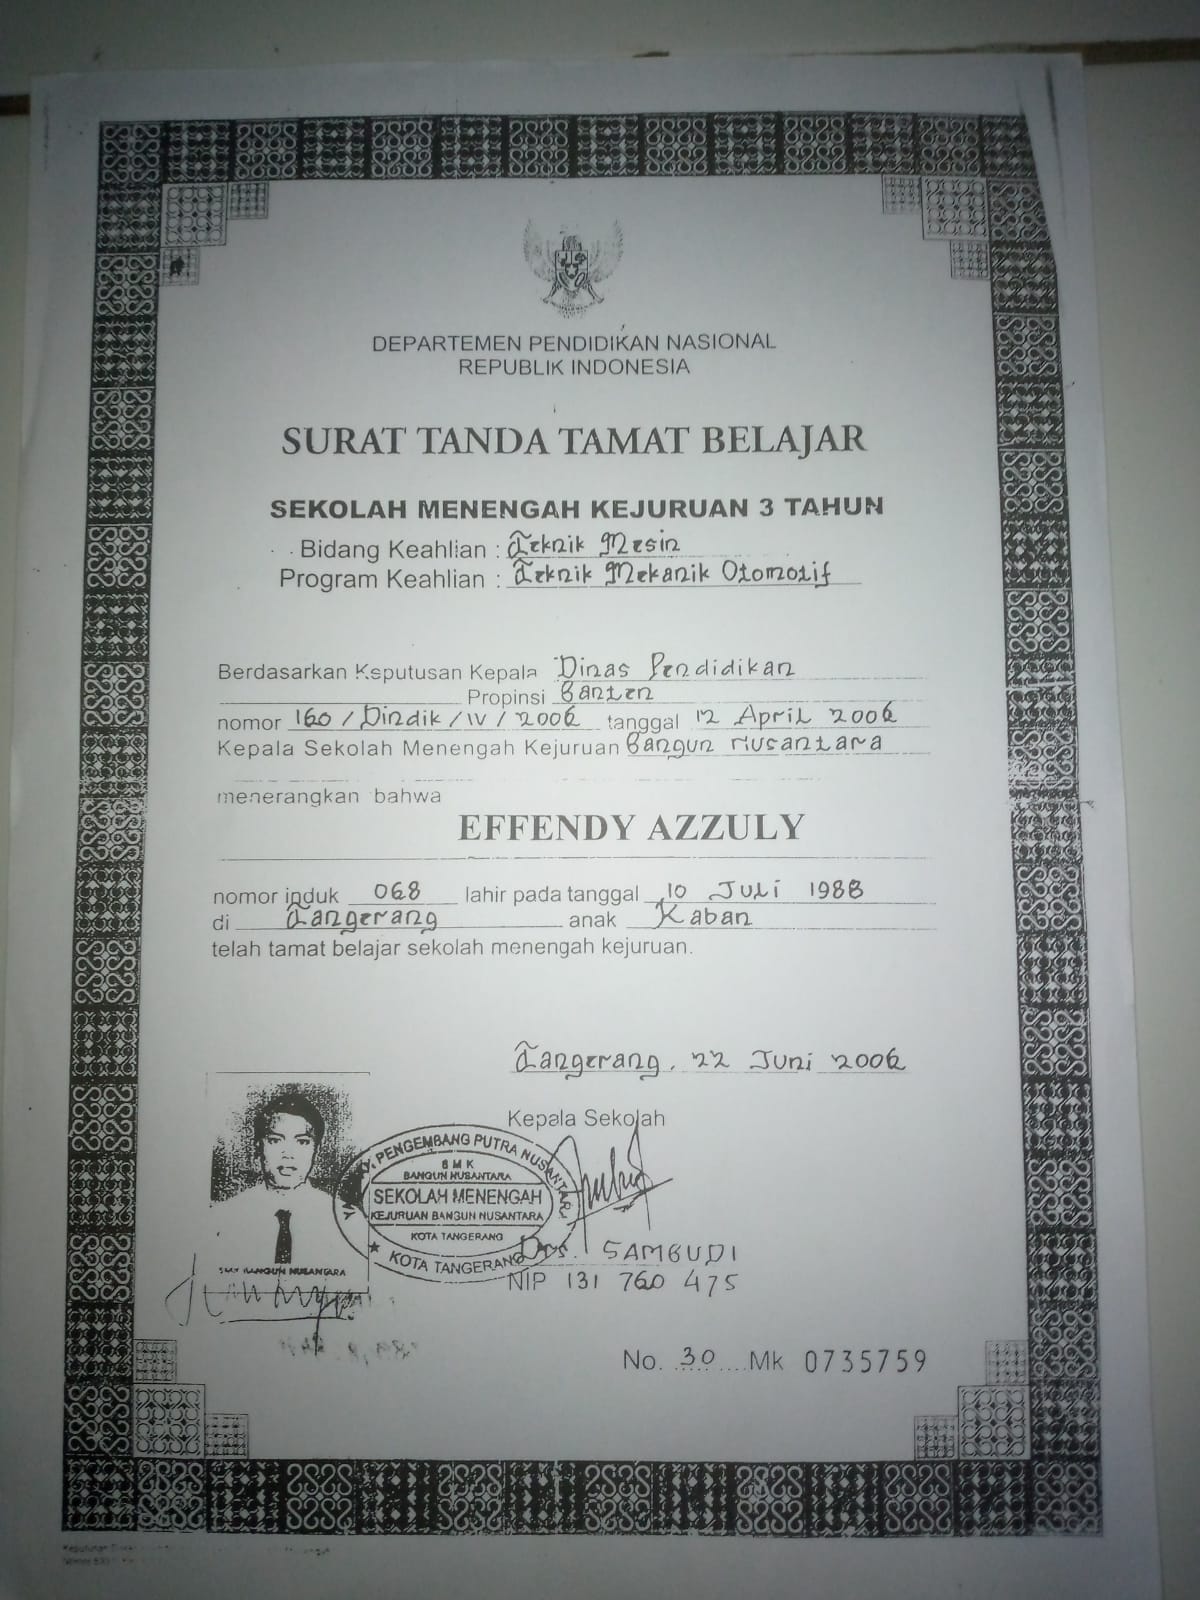 DEPARTEMEN PENDIDIKAN NASIONAL
REPUBLIK INDONESIA
SURAT TANDA TAMAT BELAJAR
SEKOLAH MENENGAH KEJURUAN 3 TAHUN
Bidang Keahlian : Teknik Mesin
Program Keahlian : Teknik Mekanik Otomotif
Berdasarkan Keputusan Kepala Dinas Pendidikan
Propinsi Banten
nomor 160 / Dindik / IV / 2006 tanggal 12 April 2006
Kepala Sekolah Menengah Kejuruan Bangun Nusantara
menerangkan bahwa
EFFENDY AZZULY
nomor induk 068 lahir pada tanggal 10 Juli 1988
di Tangerang anak Kaban
telah tamat belajar sekolah menengah kejuruan.
Tangerang, 22 Juni 2006
Kepala Sekolah
PENGEMBANG PUTRA NUSANTARA
SMK
BANGUN NUSANTARA
SEKOLAH MENENGAH
KEJURUAN BANGUN NUSANTARA
KOTA TANGERANG
KOTA TANGERANG
Drs. SAMBUDI
NIP 131 760 475
BANGUN NUSANTARA
No. 30 Mk 0735759